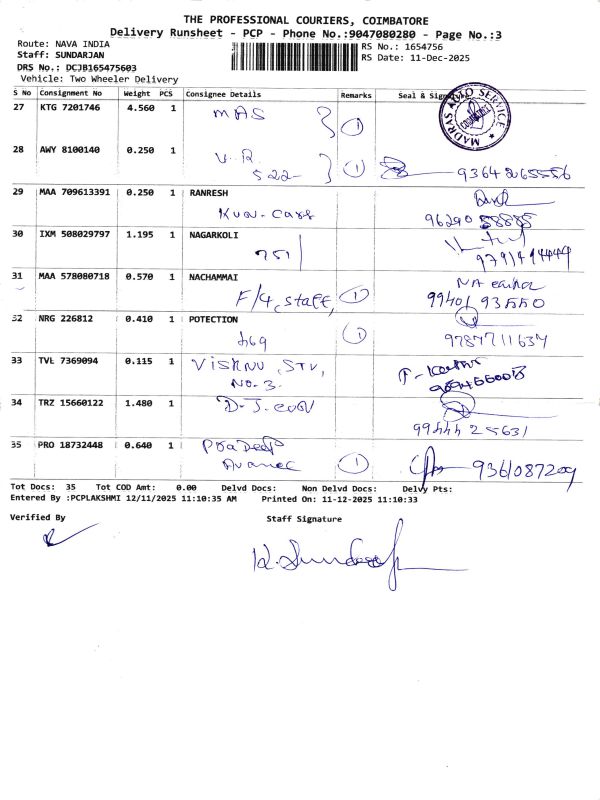 THE PROFESSIONAL COURIERS, COIMBATORE
Delivery Runsheet - PCP - Phone No.:9047080280 - Page No.:3
Route: NAVA INDIA
RS No.: 1654756
Staff: SUNDARJAN
RS Date: 11-Dec-2025
DRS No.: DCJB165475603
Vehicle: Two Wheeler Delivery
S No Consignment No Weight PCS Consignee Details Remarks Seal & Sign
MADRAS AUTO SERVICE
COIMBATORE
27 KTG 7201746 4.560 1 MAS 1
28 AWY 8100140 0.250 1 V.R. 1
522- 9364265556
29 MAA 709613391 0.250 1 RANRESH
Kun-Cars 96290 58885
30 IXM 508029797 1.195 1 NAGARKOLI
751 9791414449
31 MAA 578080718 0.570 1 NACHAMMAI
F/4, Staff, 1 99401 93550
32 NRG 226812 0.410 1 POTECTION
469 1 9787711637
33 TVL 7369094 0.115 1 VISHNU, STV,
No. 3.
34 TRZ 15660122 1.480 1 D.J.
99444 25631
35 PRO 18732448 0.640 1 Pradeep
1 9361087209
Tot Docs: 35 Tot COD Amt: 0.00 Delvd Docs: Non Delvd Docs: Delvy Pts:
Entered By :PCPLAKSHMI 12/11/2025 11:10:35 AM Printed On: 11-12-2025 11:10:33
Verified By Staff Signature